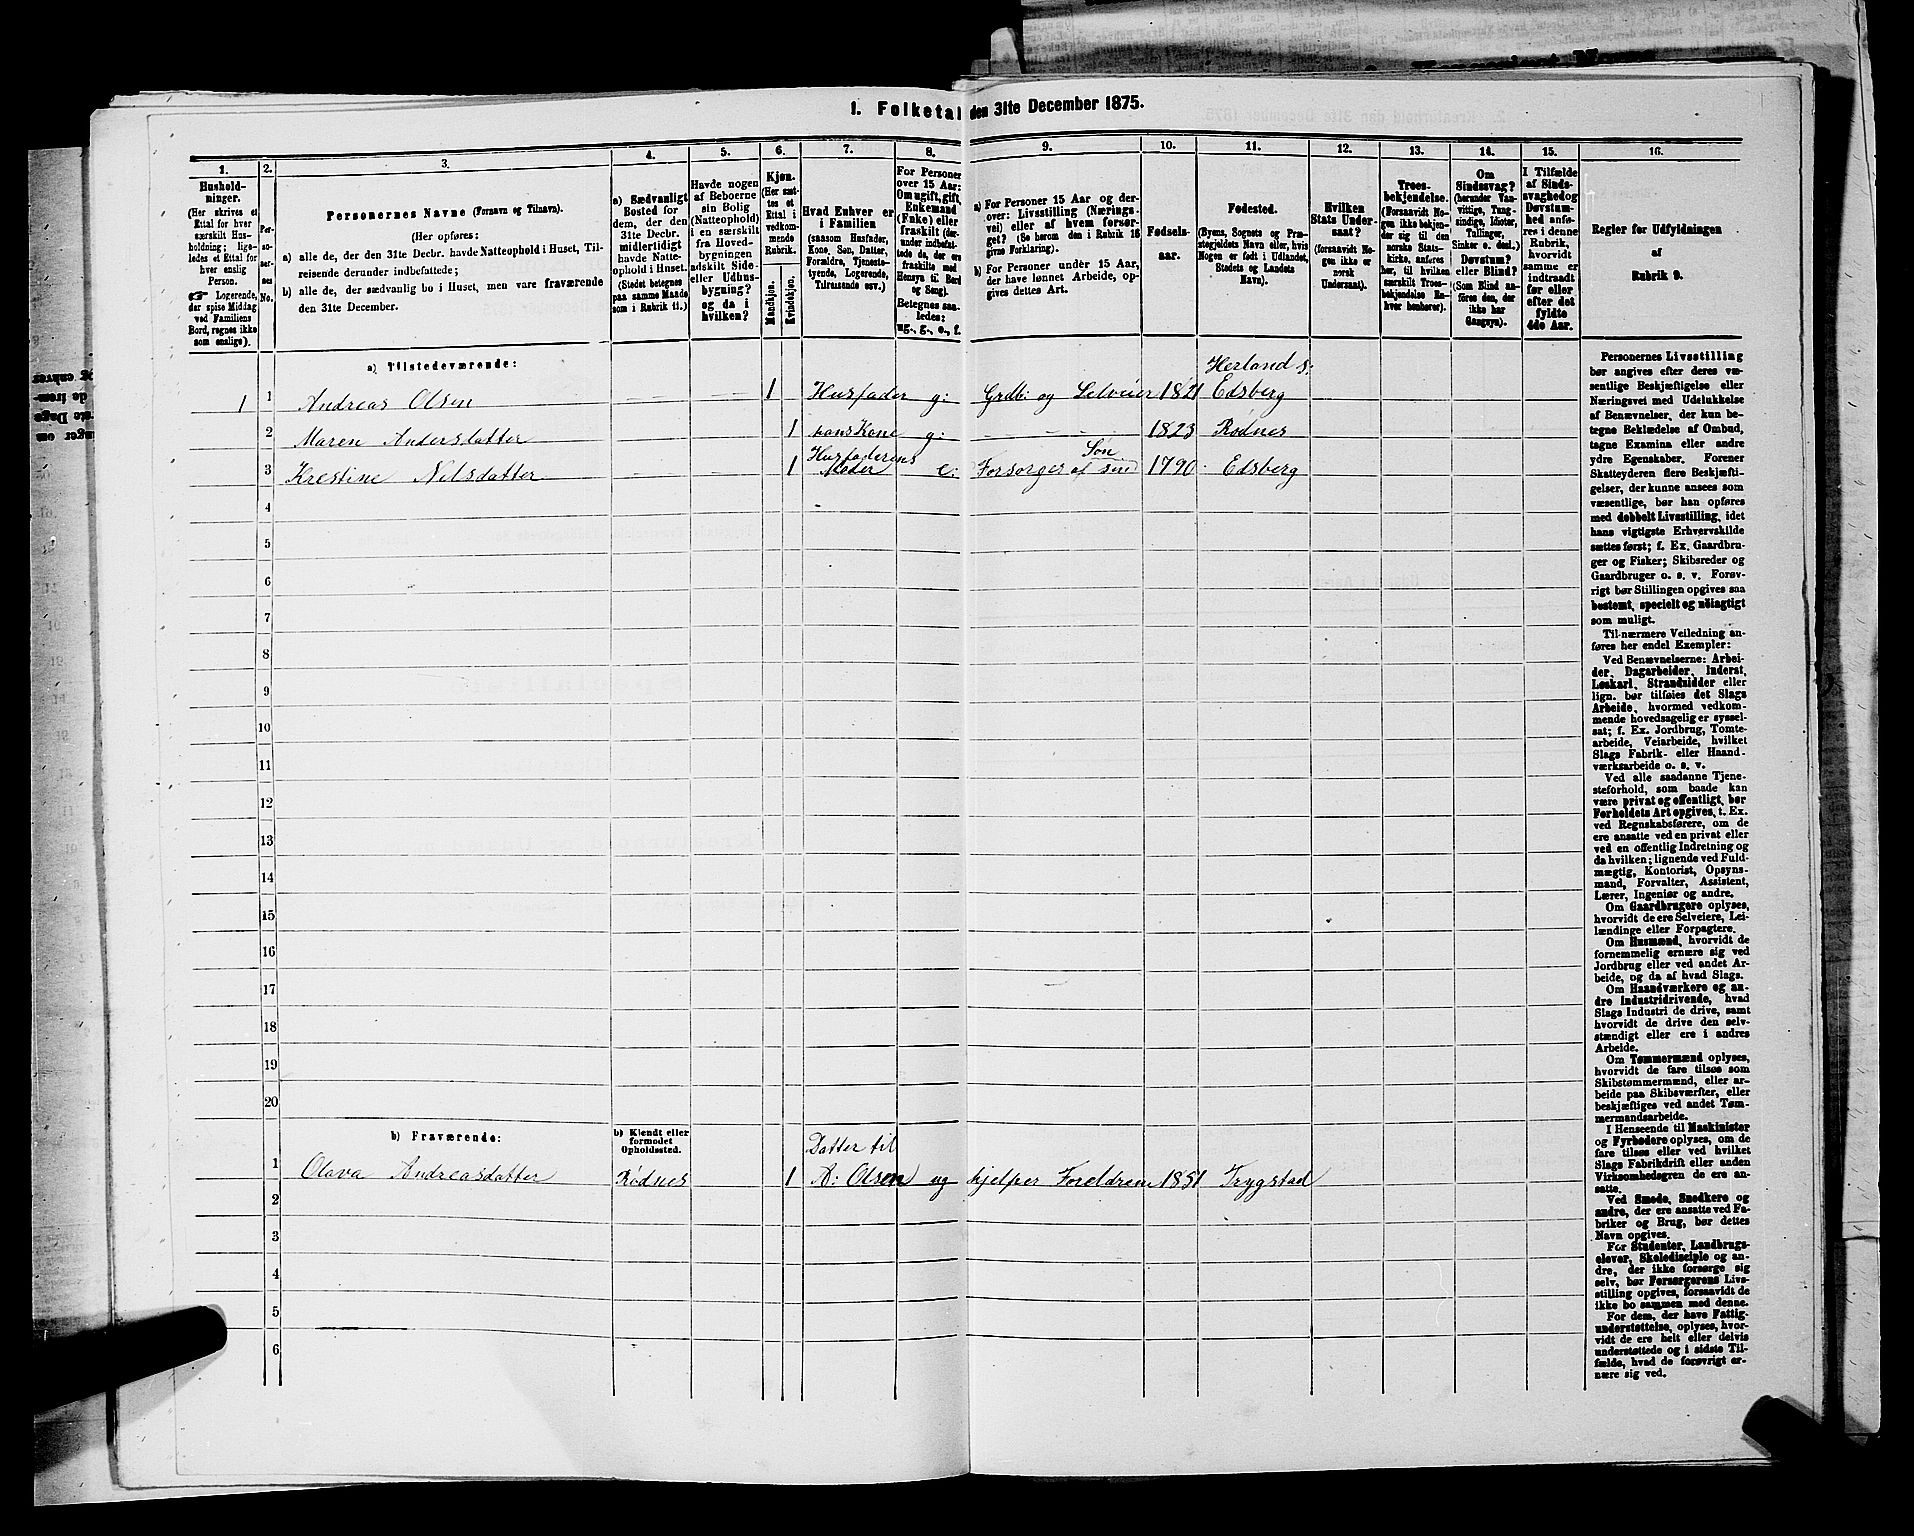 1. Folketal den 31te December 1875.
1. 2. 3. 4. 5. 6. 7. 8. 9. 10. 11. 12. 13. 14. 15. 16.
Hushold-
ninger.
(Her skrives et
Ettal for hver
særskilt Hus-
holdning; lige-
ledes et Ettal for
hver enslig
Person.
☞ Logerende,
der spise Middag
ved Familiens
Bord, regnes ikke
som enslige).
Per-
so-
ner-
nes
No.
Personernes Navne (Fornavn og Tilnavn).
(Her opføres:
a) alle de, der den 31te Decbr. havde Natteophold i Huset, Til-
reisende derunder indbefattede;
b) alle de, der sædvanlig bo i Huset, men vare fraværende
den 31te December.
a) Sædvanligt
Bosted for
dem, der den
31te Decbr.
midlertidigt
havde Natte-
ophold i Huset.
(Stedet betegnes
paa samme Maade
som i Rubrik 11.)
Havde nogen
af Beboerne
sin Bolig
(Natteophold)
i en særskilt
fra Hoved-
bygningen
adskilt Side-
eller Udhus-
bygning?
og da i
hvilken?
Kjøn.
(Her sæt-
tes et
Ettal i
vedkom-
mende
Rubrik.
Mandkjøn.
Kvindekjøn.
Hvad Enhver er
i Familien
(saasom Husfader,
Kone, Søn, Datter,
Forældre, Tjeneste-
tyende, Logerende,
Tilreisende osv.)
For Personer
over 15 Aar:
Om ugift, gift,
Enkemand
(Enke) eller
fraskilt (der-
under indbefat-
tede de, der ere
fraskilte med
Hensyn til Bord
og Seng).
Betegnes saa-
ledes:
ug., g., e., f.
a) For Personer 15 Aar og der-
over: Livsstilling (Nærings-
vei) eller af hvem forsør-
get? (Se herom den i Rubrik 16
givne Forklaring).
b) For Personer under 15 Aar,
der have lønnet Arbeide, op-
gives dettes Art.
Fødsels-
aar.
Fødested.
(Byens, Sognets og Præ-
stegjeldets Navn eller, hvis
Nogen er født i Udlandet,
Stedets og Landets
Navn).
Hvilken
Stats Under-
saat?
(forsaavidt No-
gen ikke er
norsk
Undersaat).
Troes-
bekjendelse.
(Forsaavidt No-
gen ikke bekjen-
der sig til den
norske Stats-
kirke, anføres
her, til hvilken
særskilt Troes-
bekjendelse En-
hver henhører).
Om
Sindssvag?
(herunder Van-
vittige, Tung-
sindige, Idioter,
Tullinger,
Sinker o. desl.)
Døvstum?
eller Blind?
(Som Blind an-
føres den, der
ikke har
Gangsyn).
I Tilfælde
af Sinds-
svaghed og
Døvstum-
hed anfø-
res i denne
Rubrik,
hvorvidt
samme er
indtraadt
før eller
efter det
fyldte
4de Aar.
Regler for Udfyldningen
af
Rubrik 9.
a) Tilstedeværende:
Herland s:
1 1 Andreas Olsen 1 Husfader g: Grdbr og Selveier 1821 Edsberg
2 Maren Andersdatter 1 hans Kone g: 1823 Rødnes
3 Krestine Nelsdatter 1 Husfaderens Moder e: Forsørges af sin Søn 1790 Edsberg
4
5
6
7
8
9
10
11
12
13
14
15
16
17
18
19
20
b) Fraværende:
b) Kjendt eller
formodet
Opholdssted.
Datter til
1 Olava Andreasdatter Rødnes 1 A: Olsen ug hjelper Foreldrene 1851 Trygstad
2
3
4
5
6
Personernes Livsstilling
bør angives efter deres væ-
sentlige Beskjæftigelse eller
Næringsvei med Udelukkelse
af Benævnelser, der kun be-
tegne Beklædelse af Ombud,
tagne Examina eller andre
ydre Egenskaber. Forener
Skatteyderen flere Beskjæfti-
gelser, der kunne ansees som
væsentlige, bør han opføres
med dobbelt Livsstilling, idet
hans vigtigste Erhvervskilde
sættes først; f. Ex. Gaardbru-
ger og Fisker; Skibsreder og
Gaardbruger o. s. v. Forøv-
rigt bør Stillingen opgives saa
bestemt, specielt og nøiagtigt
som muligt.
Til nærmere Veiledning an-
føres her endel Exempler:
Ved Benævnelserne: Arbei-
der, Dagarbeider, Inderst,
Løskarl, Strandsidder eller
lign. bør tilføies det Slags
Arbeide, hvormed vedkom-
mende hovedsagelig er syssel-
sat; f. Ex. Jordbrug, Tomte-
arbeide, Veiarbeide, hvilket
Slags Fabrik- eller Haand-
værksarbeide o. s. v.
Ved alle saadanne Tjene-
steforhold, som baade kan
være privat og offentligt, bør
Forholdets Art opgives, t. Ex.
ved Regnskabsførere, om de
ere ansatte ved en privat eller
ved en offentlig Indretning og
da hvilken; lignende ved Fuld-
mægtig, Kontorist, Opsyns-
mand, Forvalter, Assistent,
Lærer, Ingeniør og andre.
Om Gaardbrugere oplyses,
hvorvidt de ere Selveiere, Lei-
lændinge eller Forpagtere.
Om Husmænd, hvorvidt de
fornemmelig ernære sig ved
Jordbrug eller ved andet Ar-
beide, og da af hvad Slags.
Om Haandværkere og an-
dre Industridrivende, hvad
Slags Industri de drive, samt
hvorvidt de drive den selv-
stændigt eller ere i andres
Arbeide.
Om Tømmermænd oplyses,
hvorvidt de fare tilsøs som
Skibstømmermænd, eller ar-
beide paa Skibsværfter, eller
beskjæftiges ved andet Tøm-
mermandsarbeide.
I Henseende til Maskinister
og Fyrbødere oplyses, om de
fare tilsøs eller ved hvilket
Slags Fabrikdrift eller anden
Virksomhedsgren de ere an-
satte.
Ved Smede, Snedkere og
andre, der ere ansatte ved Fa-
briker og Brug, bør dettes
Navn opgives.
For Studenter, Landbrugs-
elever, Skoledisciple og an-
dre, der ikke forsørge sig
selv, bør Forsørgerens Livs-
stilling opgives, forsaavidt de
ikke bo sammen med denne.
For dem, der have Fattig-
understøttelse, oplyses, hvor-
vidt de ere helt eller delvis
understøttede og i sidste Til-
fælde, hvad de forøvrigt er-
nære sig ved.